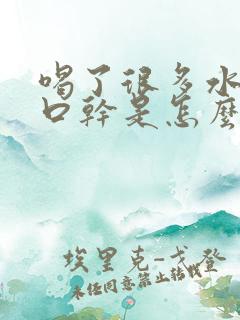 喝了很多水
口幹是怎麼
埃里克-戈登
未经同意禁止转载